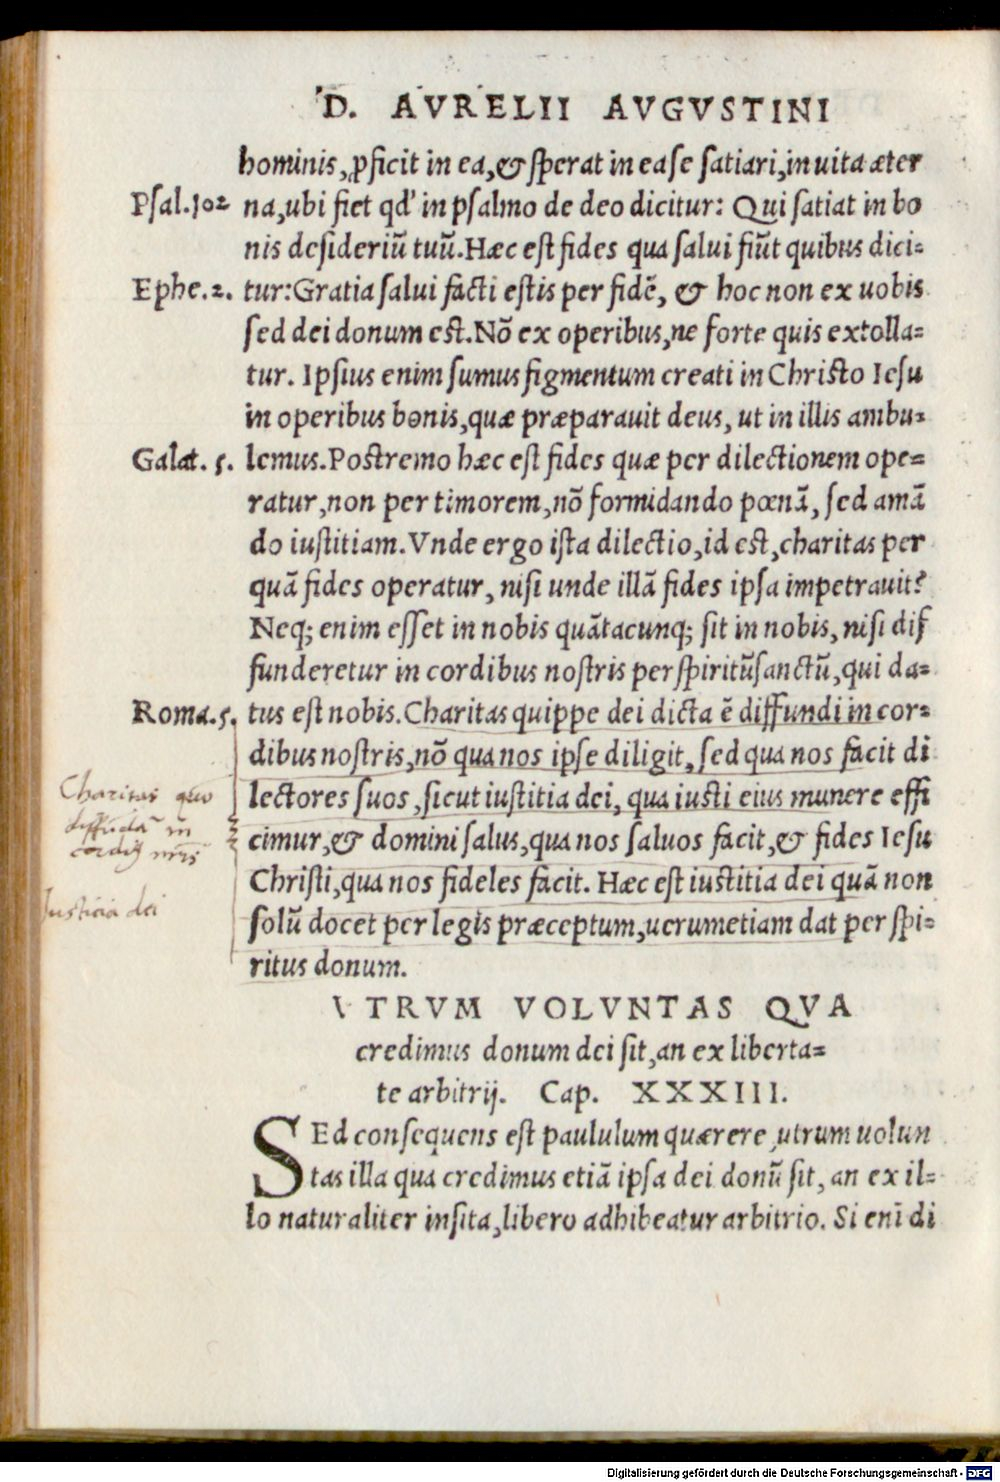 D. AVRELII AVGVSTINI
hominis, ꝓficit in ea, & ſperat in ea ſe ſatiari, in uita æter
Pſal.102 na, ubi fiet qd' in pſalmo de deo dicitur: Qui ſatiat in bo
nis deſideriū tuū. Hæc eſt fides qua ſalui fiūt quibus dici=
Ephe.2. tur: Gratia ſalui facti eſtis per fidē, & hoc non ex uobis
ſed dei donum eſt. Nō ex operibus, ne forte quis extolla=
tur. Ipſius enim ſumus figmentum creati in Chriſto Ieſu
in operibus bonis, quæ præparauit deus, ut in illis ambu=
Galat. 5. lemus. Poſtremo hæc eſt fides quæ per dilectionem ope=
ratur, non per timorem, nō formidando pœnā, ſed amā
do iuſtitiam. Vnde ergo iſta dilectio, id eſt, charitas per
quā fides operatur, niſi unde illā fides ipſa impetrauit?
Neq; enim eſſet in nobis quātacunq; ſit in nobis, niſi dif
funderetur in cordibus noſtris per ſpiritūſanctū, qui da=
Roma.5. tus eſt nobis. Charitas quippe dei dicta ē diffundi in cor=
dibus noſtris, nō qua nos ipſe diligit, ſed qua nos facit di
Charitas quo
diffūdat̄ in
cordib nr̄is
lectores ſuos, ſicut iuſtitia dei, qua iuſti eius munere effi
cimur, & domini ſalus, qua nos ſaluos facit, & fides Ieſu
Chriſti, qua nos fideles facit. Hæc eſt iuſtitia dei quā non
Iusticia dei
ſolū docet per legis præceptum, uerumetiam dat per ſpi=
ritus donum.
VTRVM VOLVNTAS QVA
credimus donum dei ſit, an ex liberta=
te arbitrij. Cap. XXXIII.
SEd conſequens eſt paululum quærere, utrum uolun
tas illa qua credimus etiā ipſa dei donū ſit, an ex il=
lo naturaliter inſita, libero adhibeatur arbitrio. Si enī di
Digitalisierung gefördert durch die Deutsche Forschungsgemeinschaft - DFG